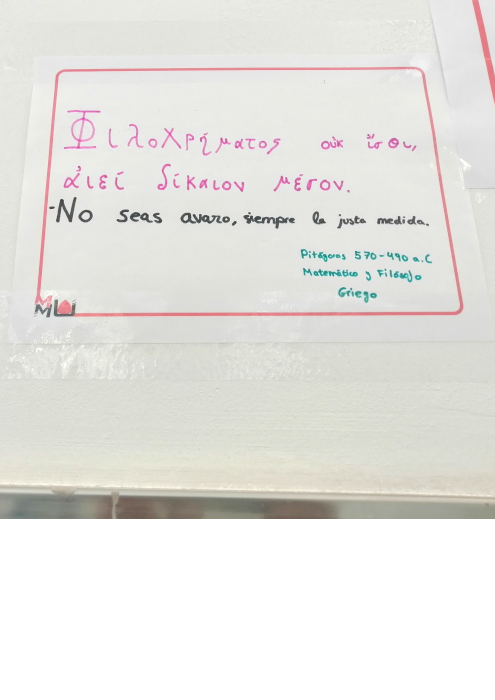 Φιλοχρήματος οὐκ ἴσθι,
ἀιεί δίκαιον μέσον.
-No seas avaro, siempre la justa medida.
Pitágoras 570-490 a.C
Matemático y Filósofo
Griego